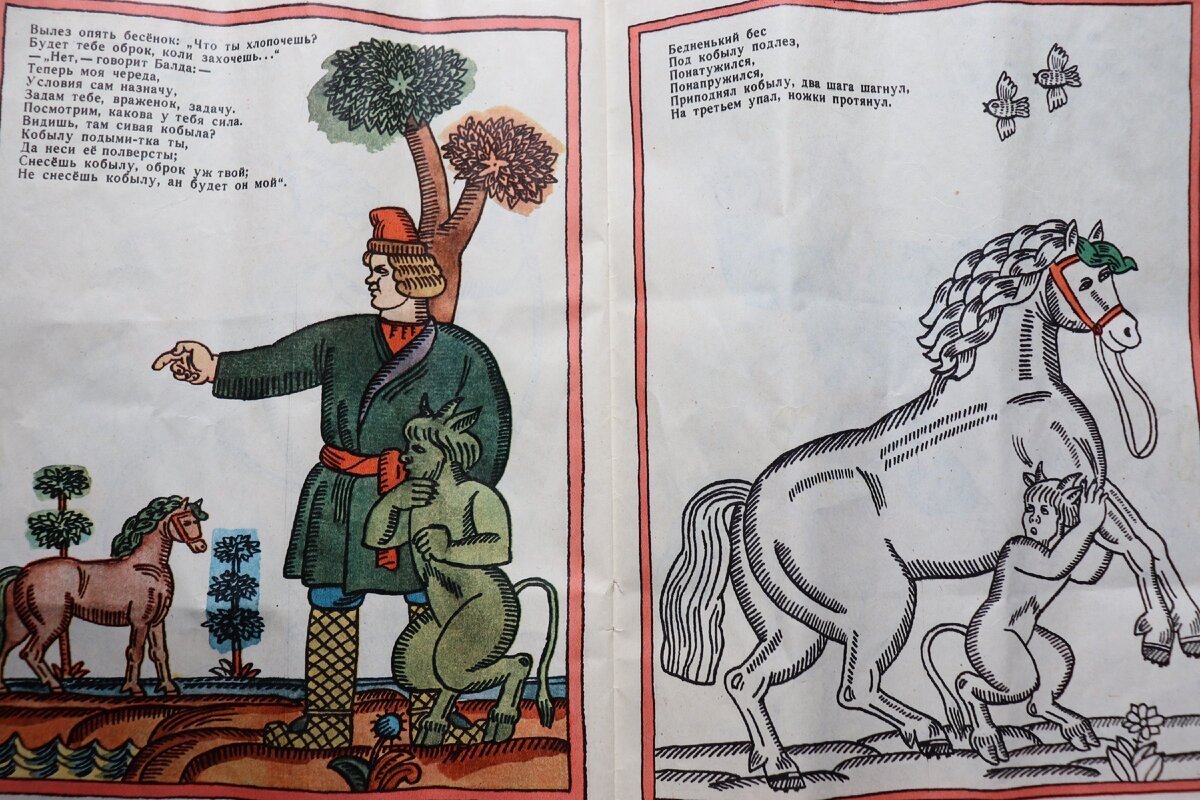 Вылез опять бесёнок: „Что ты хлопочешь?
Будет тебе оброк, коли захочешь...“
— „Нет, — говорит Балда: —
Теперь моя череда,
Условия сам назначу,
Задам тебе, враженок, задачу.
Посмотрим, какова у тебя сила.
Видишь, там сивая кобыла?
Кобылу подыми-тка ты,
Да неси её полверсты;
Снесёшь кобылу, оброк уж твой;
Не снесёшь кобылу, ан будет он мой“.
Бедненький бес
Под кобылу подлез,
Понатужился,
Понапружился,
Приподнял кобылу, два шага шагнул,
На третьем упал, ножки протянул.